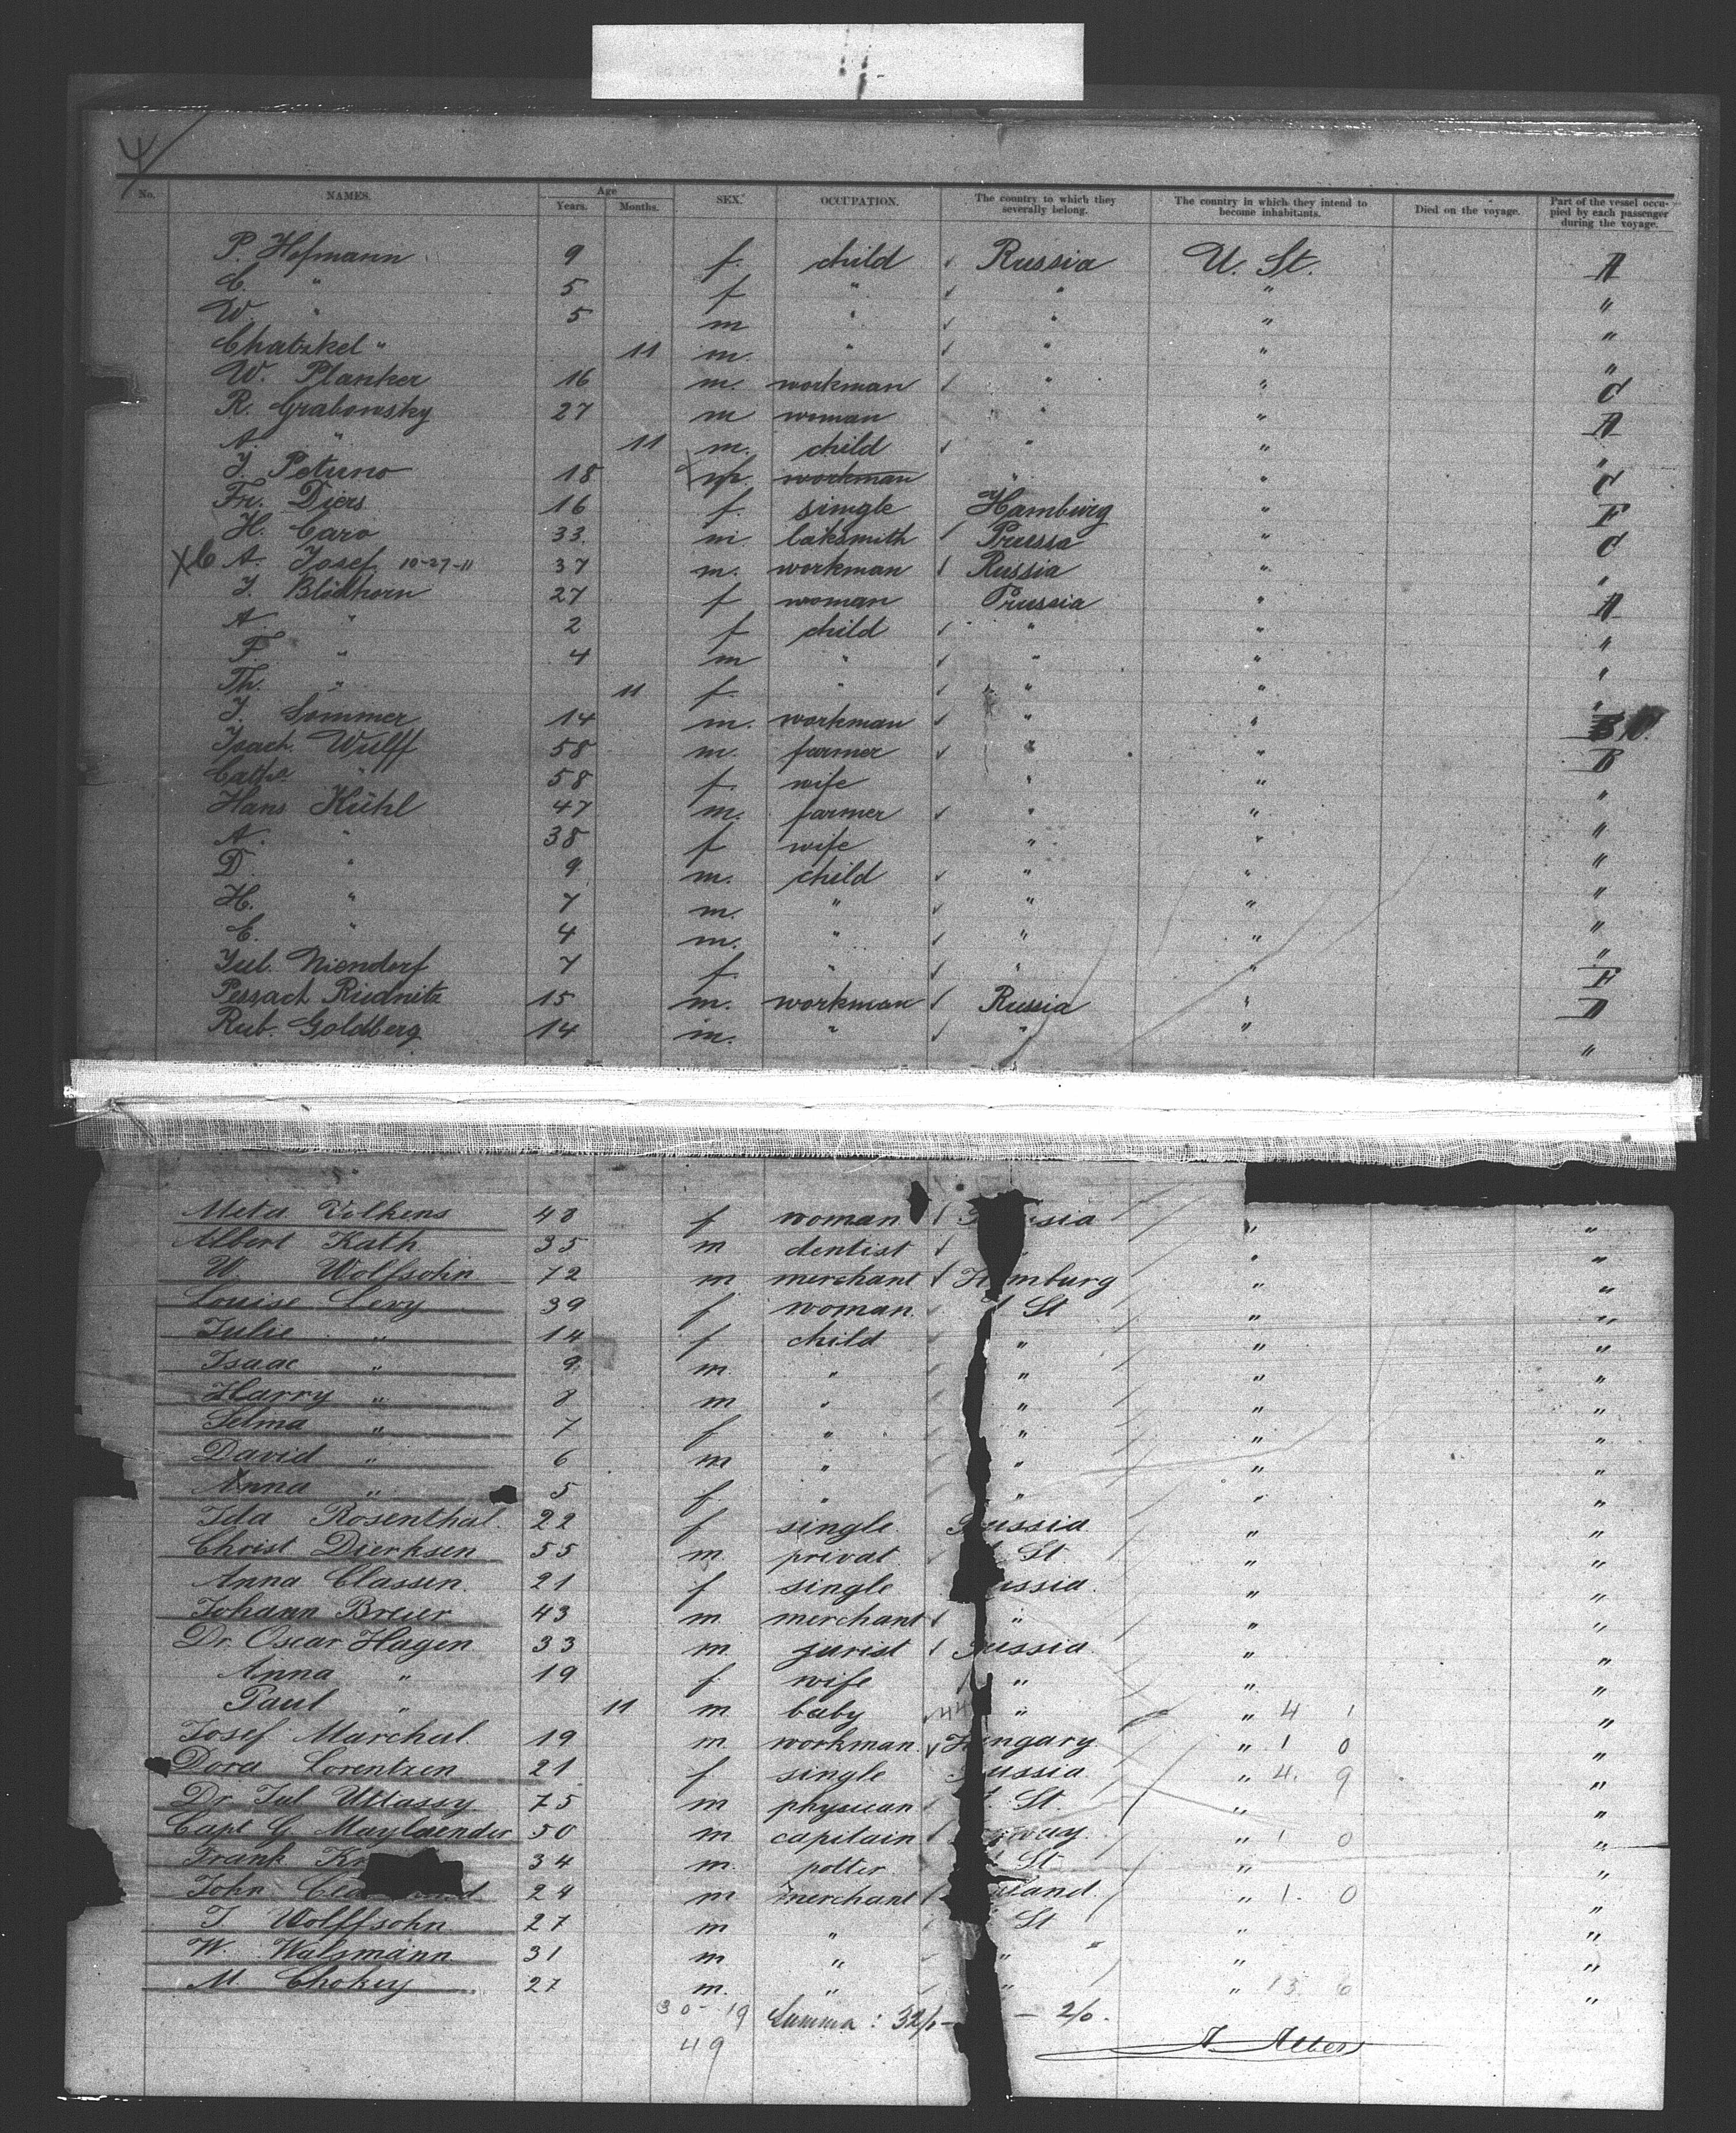 4
No. NAMES. Age Years. Months. SEX. OCCUPATION. The country to which they severally belong. The country in which they intend to become inhabitants. Died on the voyage. Part of the vessel occupied by each passenger during the voyage.
P. Hofmann 9 f. child Russia U. St. A
C. " 5 f " " " "
W. " 5 m " " " "
Chatzkel " 11 m. " " " "
W. Planker 16 m. workman " " C
R. Grabowsky 27 m woman " " A
A. " 11 m. child " " "
J. Petuno 18 m. workman " " C
Fr. Diers 16 f. single Hamburg " F
H. Caro 33. m laksmith Prussa " C
A. Josef 10-27-11 37 m. workman Russia " "
J. Blödhorn 27 f woman Prussia " A
A. " 2 f child " " "
F. " 4 m " " " "
Th. " 11 f. " " " "
J. Sommer 14 m. workman " "
Joach. Wulff 58 m. farmer " " B
Catha " 58 f. wife " " "
Hans Kühl 47 m. farmer " " "
A. " 38 f wife " " "
D. " 9 m. child " " "
H. " 7 m. " " " "
E. " 4 m. " " " "
Jul. Niendorf 7 f. " " " F
Pessach Rudnitz 15 m. workman Russia " D
Rub. Goldberg 14 m. " " " "
Meta Volkens 48 f woman sia " "
Albert Kath 35 m dentist " "
W. Wolfsohn 72 m merchant H mburg " "
Louise Levy 39 f woman St " "
Julie " 14 f child " " "
Isaac " 9 m. " " " "
Harry " 8 m " " " "
Selma " 7 f " " " "
David " 6 m " " " "
Anna " 5 f " " " "
Ida Rosenthal. 22 f single. ussia " "
Christ Dierksen 55 m. privat St " "
Anna Classen. 21 f single ussia. " "
Johann Breier 43 m. merchant " " "
Dr. Oscar Hagen 33 m. jurist ussia " "
Anna " 19 f. wife " " "
Paul " 11 m. baby 44 " " 4 1 "
Josef Marchal. 19 m. workman. H ngary. " 1 0 "
Dora Lorentzen 21 f single ussia " 4. 9 "
Dr. Jul Uttassy 75 m physician St. " "
Capt G. Maylaender 50 m. capitain way. " 1 0 "
Frank Kr 34 m. potter St " "
John Cla d 24 m merchant land. " 1. 0 "
J. Wolffsohn 27 m " St " "
W. Walsmann 31 m " " " "
M. Chokey 27 m. " " " 13. 6 "
30-19 Summa : 32/0 — 2/0.
49
A. Albers